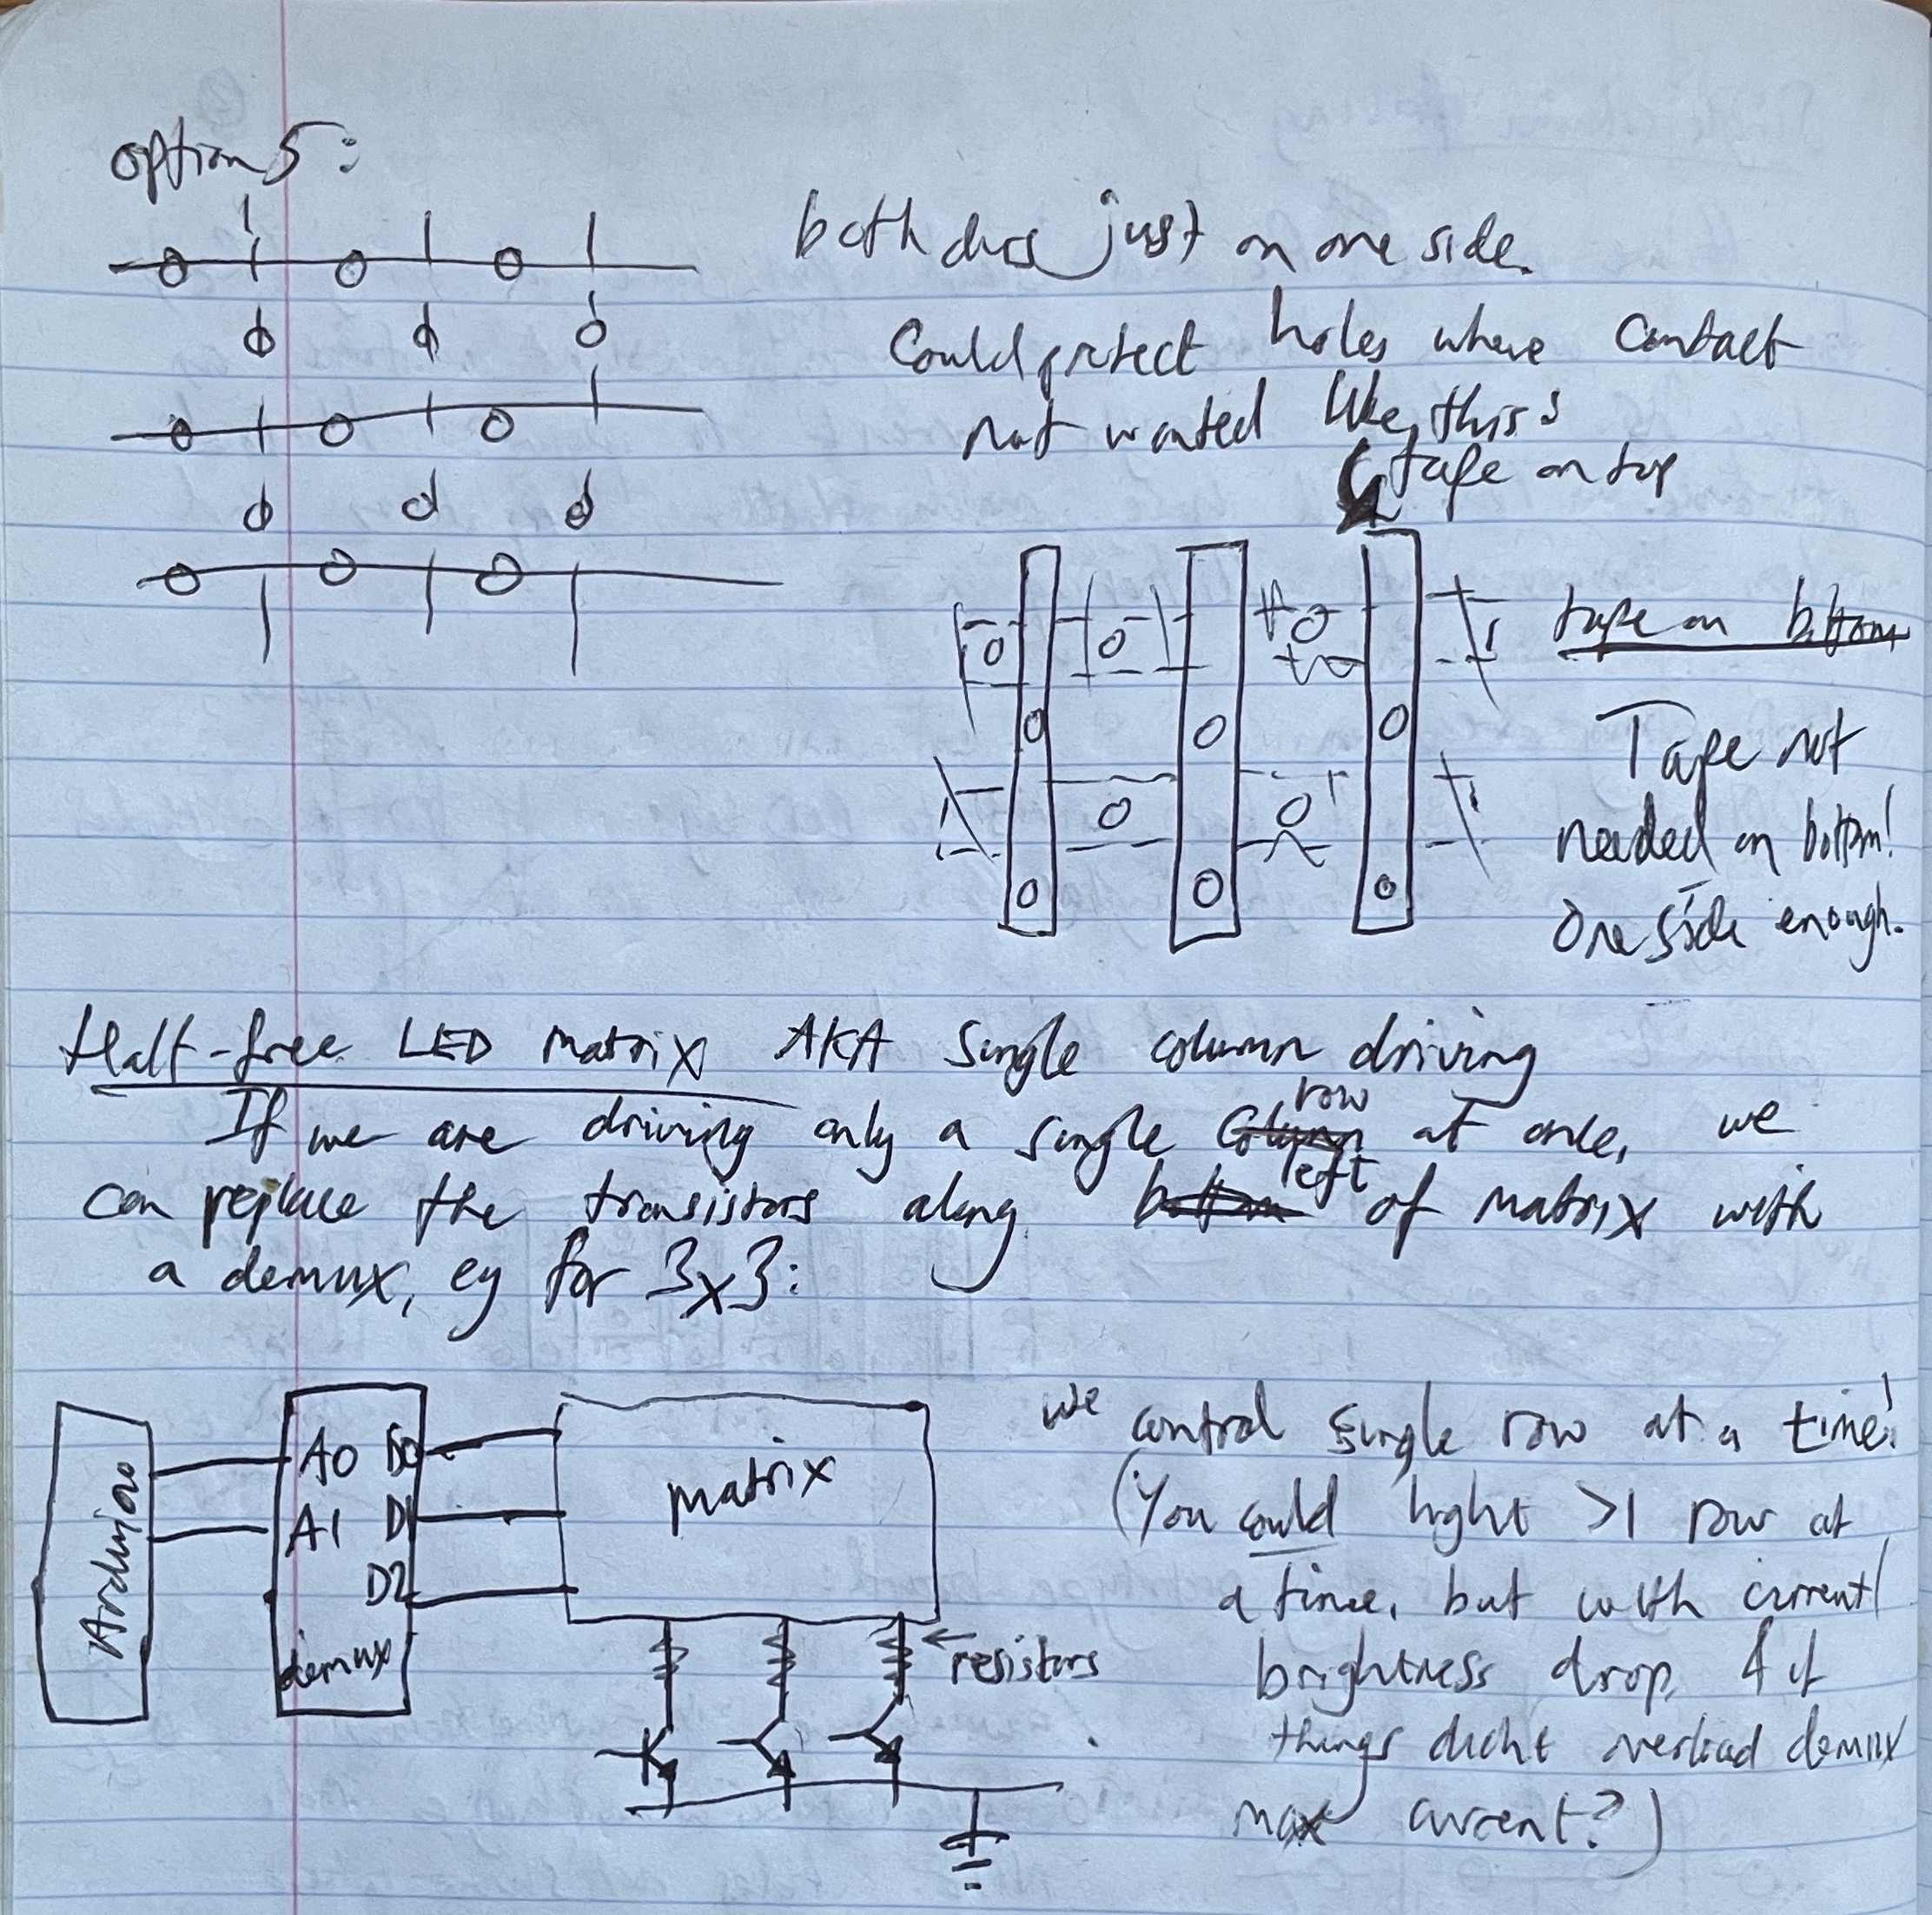 option 5:
both dirs just on one side.
Could protect holes where contact
not wanted like this:
tape on top
tape on bottom
Tape not
needed on bottom!
One side enough.
Half-free LED matrix AKA Single column driving
If we are driving only a single column row at once, we
can replace the transistors along bottom left of matrix with
a demux, eg for 3x3:
Arduino
A0 D0
A1 D1
D2
demux
matrix
resistors
we control single row at a time!
(You could light >1 row at
a time, but with current/
brightness drop, & if
things didnt overload demux
max current?)